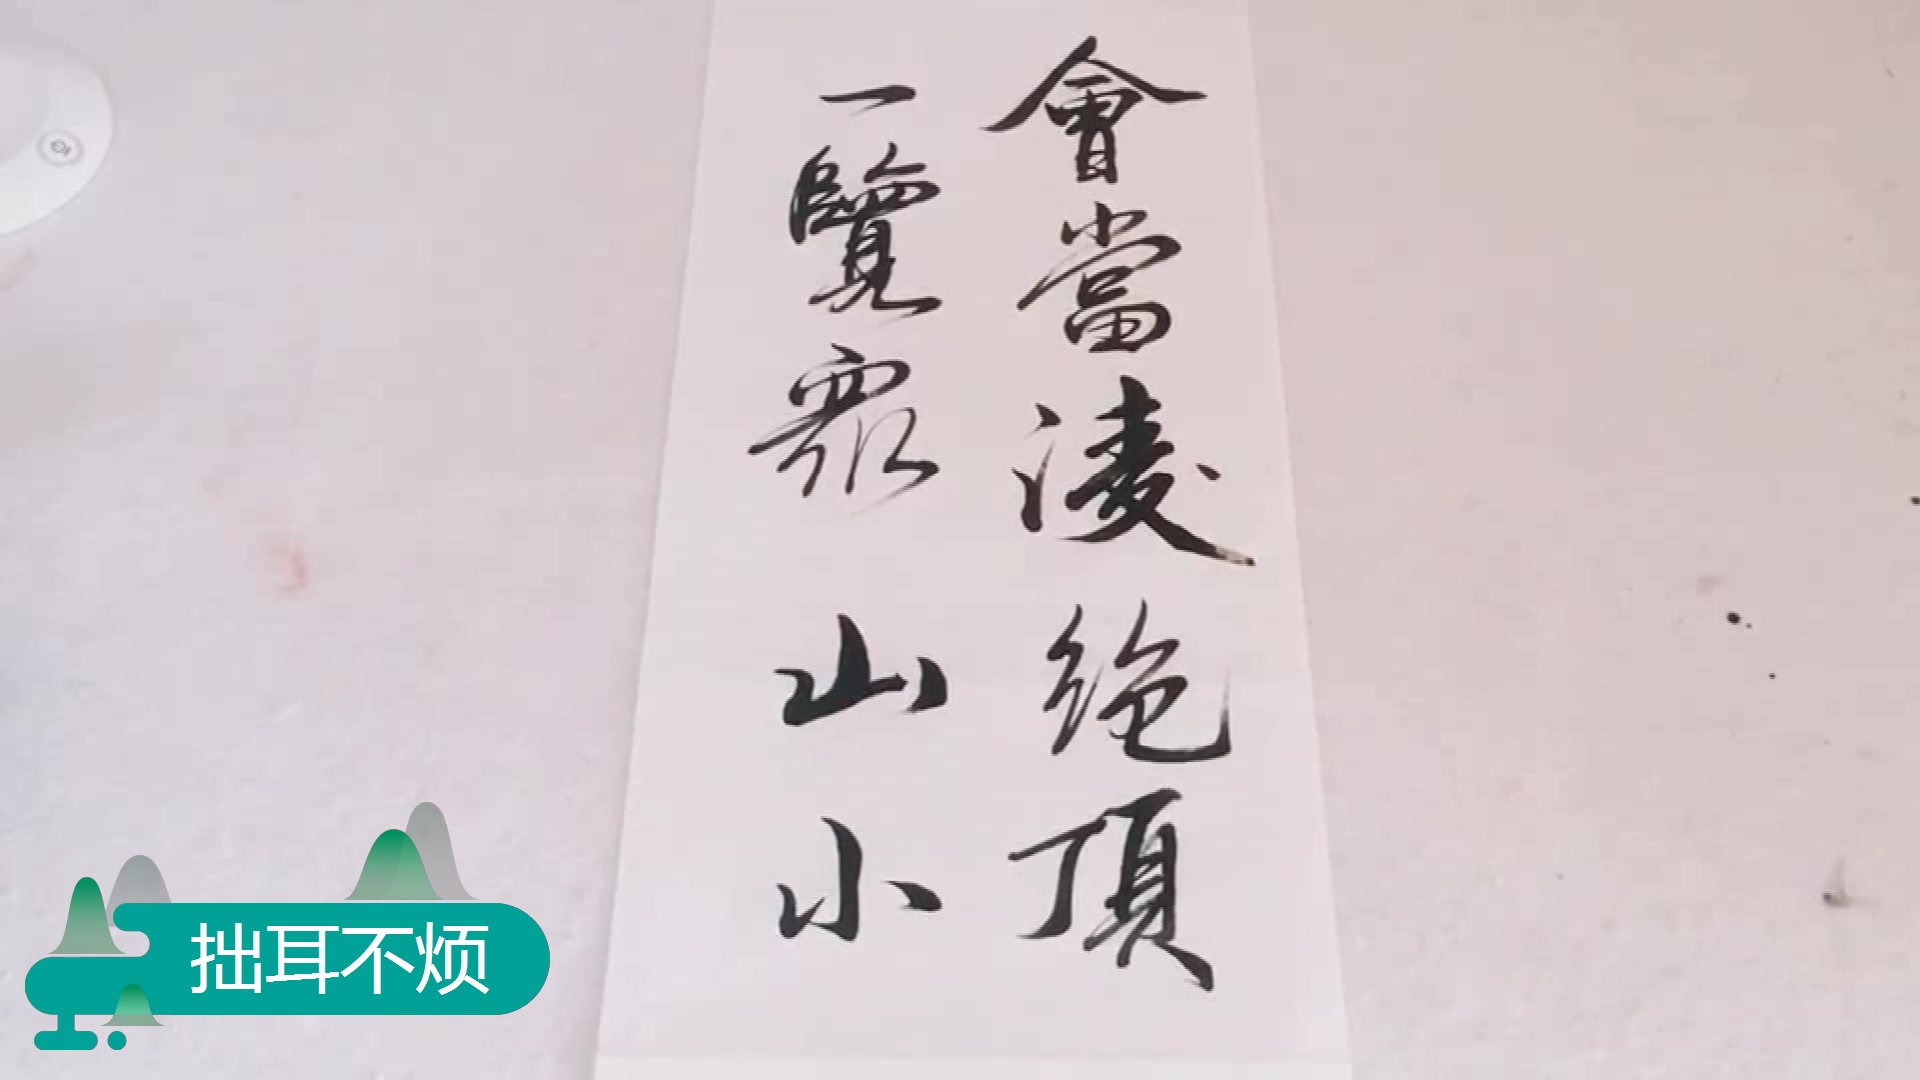 會當淩絶頂
一覽眾山小
拙耳不烦